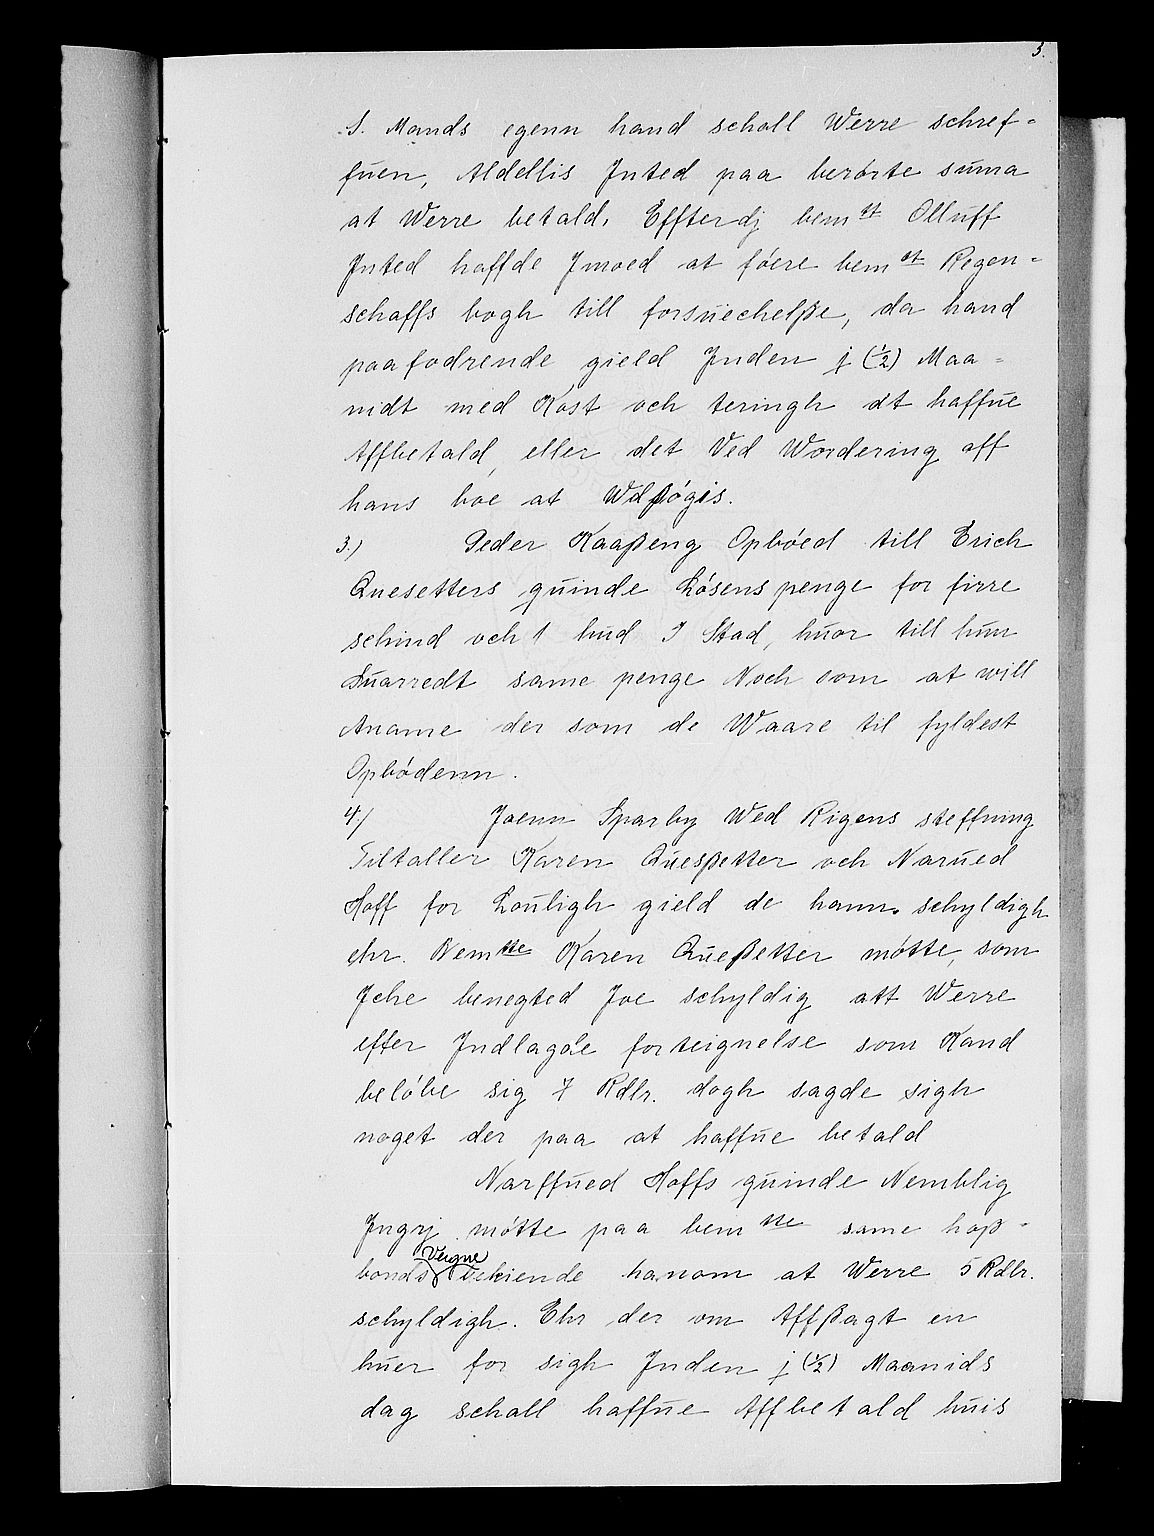 3.
S. Mands egenn hand schall Werre schref-
fuen, Aldellis Jnted paa berórte suma
at Werre betald. Effterdj bem st Olluff
Jnted haffde Jmoed at fóere bem st Regen-
schaffs bogh till forsuechelße, da hand
paafodrende gield Jnden j (1/2) Maa-
nidt med Kost och teringh dt haffue
Affbetald, eller det Ved Wordering aff
hans boe at Wdßógis.
3.) Peder Kaaßeng Opbóed till Erich
Quesetters quinde Lósens penge for firre
schind och 1 hud J Stad, huor till hun
Suarredt same penge Noch som at will
Aname der som de Waare til fyldest
Opbódenn.
4.) Joenn Sparby Wed Rigens steffning
Tiltaller Karen Quesßetter och Narued
Hoff for Louligh gield de hannom schyldigh
ehr. Nem tte Karen Queßetter mótte, som
Jche benegted Joe schyldig att Werre
efter Jndlagde forteignelse som Kand
belóbe sig 7 Rdlr. dogh sagde sigh
noget der paa at haffue betald
Narffued Hoffs quinde Nemblig
Jngrj mótte paa bem tte same hoß-
Veigne
bonds vekiende hanom at Werre 5 Rdlr.
schyldigh. Ehr der om Affßagt en
huer for sigh Jnden j (1/2) Maanids
dag schall haffue Affbetald huis